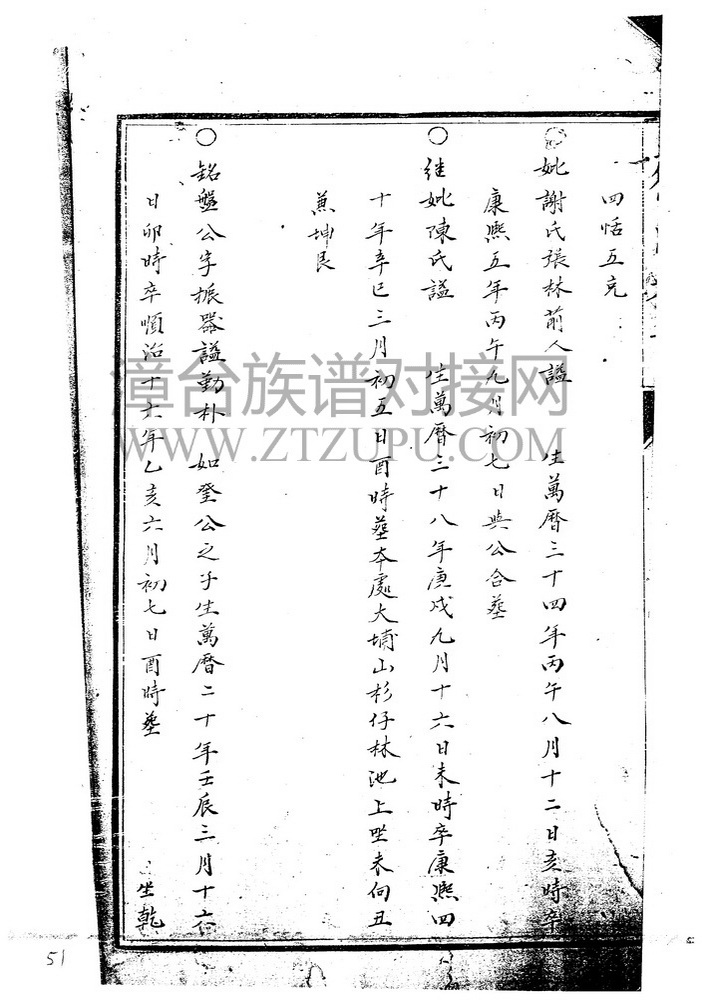 四恬五克
○妣謝氏張林前人諡 生萬曆三十四年丙午八月十二日亥時卒
康熙五年丙午九月初七日與公合塟
○继妣陳氏諡 生萬曆三十八年庚戌九月十六日未時卒康熙四
十年辛巳三月初五日酉時塟本處大埔山杉仔林池上坐未向丑
兼坤艮
○銘盤公字振器諡勤朴 如登公之子生萬曆二十年壬辰三月十六
日卯時卒順治十六年乙亥六月初七日酉時塟 坐乾
漳台族谱对接网
WWW.ZTZUPU.COM
51